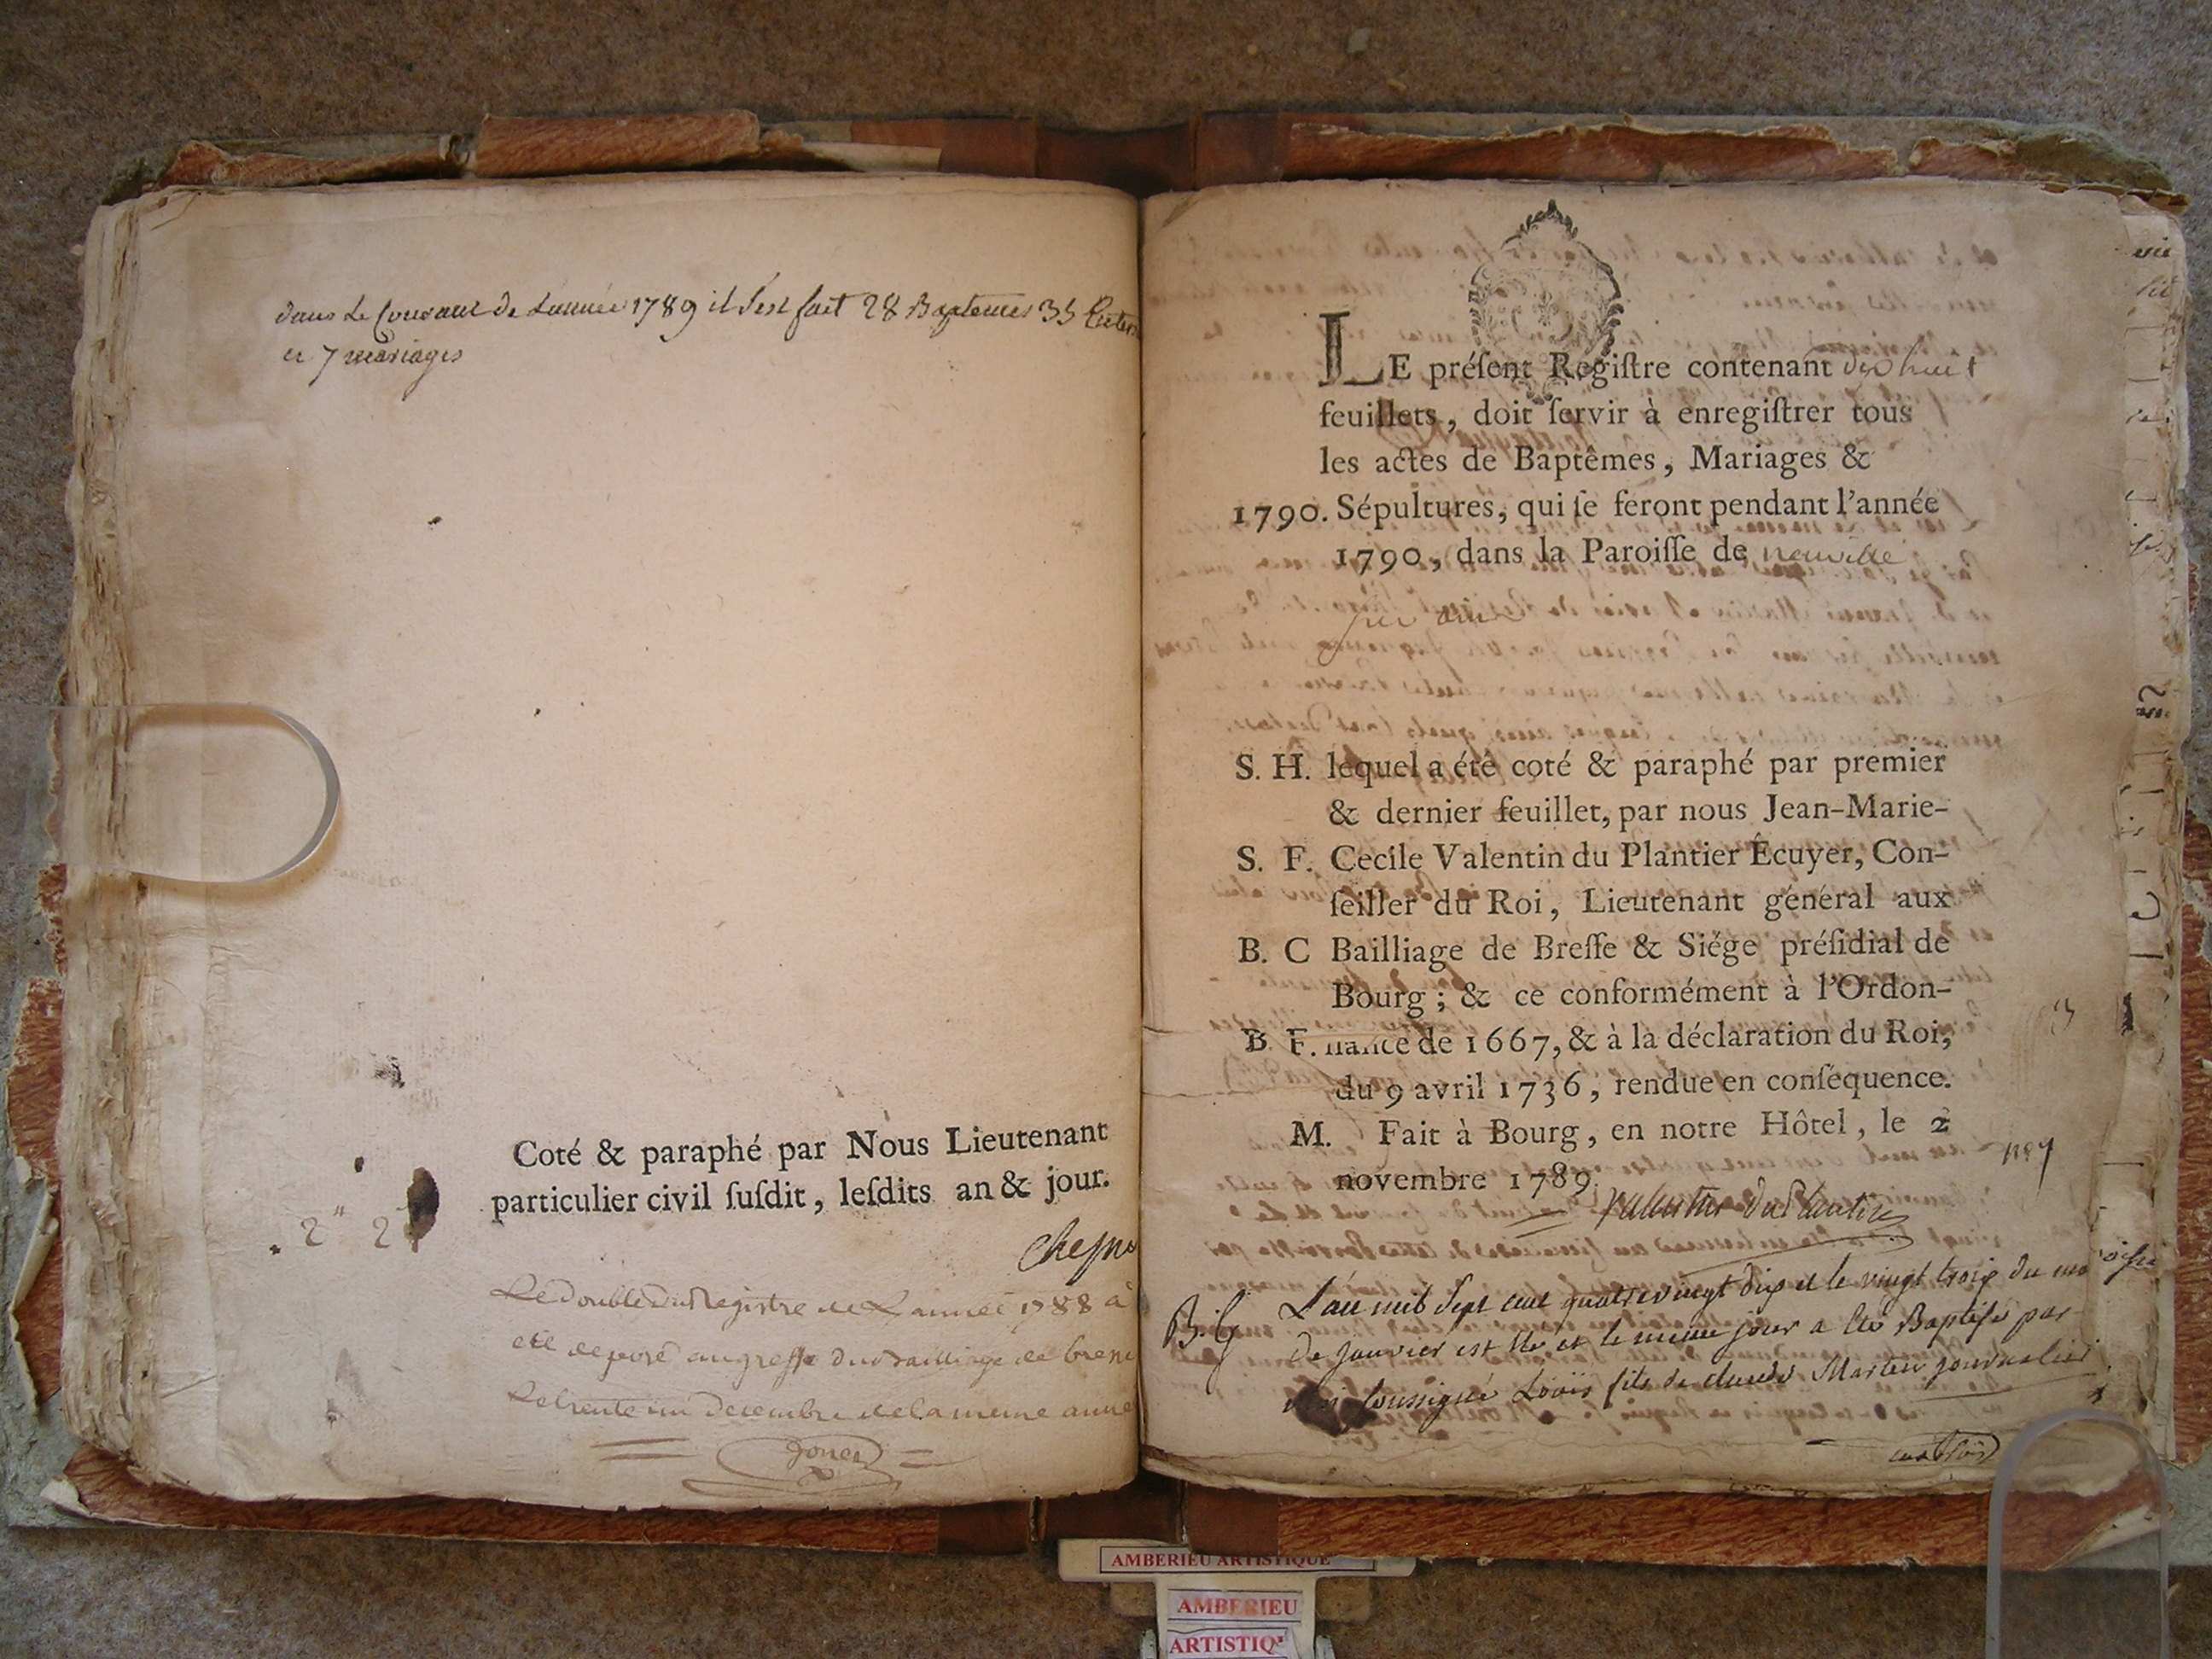 dans le Courant de Lannée 1789 il s'est fait 28 Baptemes 35 Enter
et 7 mariages
Coté & paraphé par Nous Lieutenant
particulier civil ſuſdit, leſdits an & jour.
2" 2
Le Double Du Registre de L'année 1788 a
été deposé au greffe du Bailliage de bresse
Le trente un Decembre de la meme année
LE préſent Regiſtre contenant dix huit
feuillets, doit ſervir à enregiſtrer tous
les actes de Baptêmes, Mariages &
1790. Sépultures, qui ſe feront pendant l'année
1790, dans la Paroiſſe de neuville
sur ain
S. H. lequel a été coté & paraphé par premier
& dernier feuillet, par nous Jean-Marie-
S. F. Cecile Valentin du Plantier Êcuyer, Con-
ſeiller du Roi, Lieutenant général aux
B. C Bailliage de Breſſe & Siége préſidial de
Bourg ; & ce conformément à l'Ordon-
B. F. nance de 1667, & à la déclaration du Roi,
du 9 avril 1736, rendue en conſéquence.
M. Fait à Bourg, en notre Hôtel, le 2
novembre 1789.
Valentin Duplantier
B. G L'an mil Sept cent quatrevingt dix et le vingt trois du mo
De janvier est Né et le meme jour a été Baptisé par
soussigné Loüis fils de claude Martin journalier
AMBERIEU ARTISTIQUE
AMBERIEU
ARTISTIQ